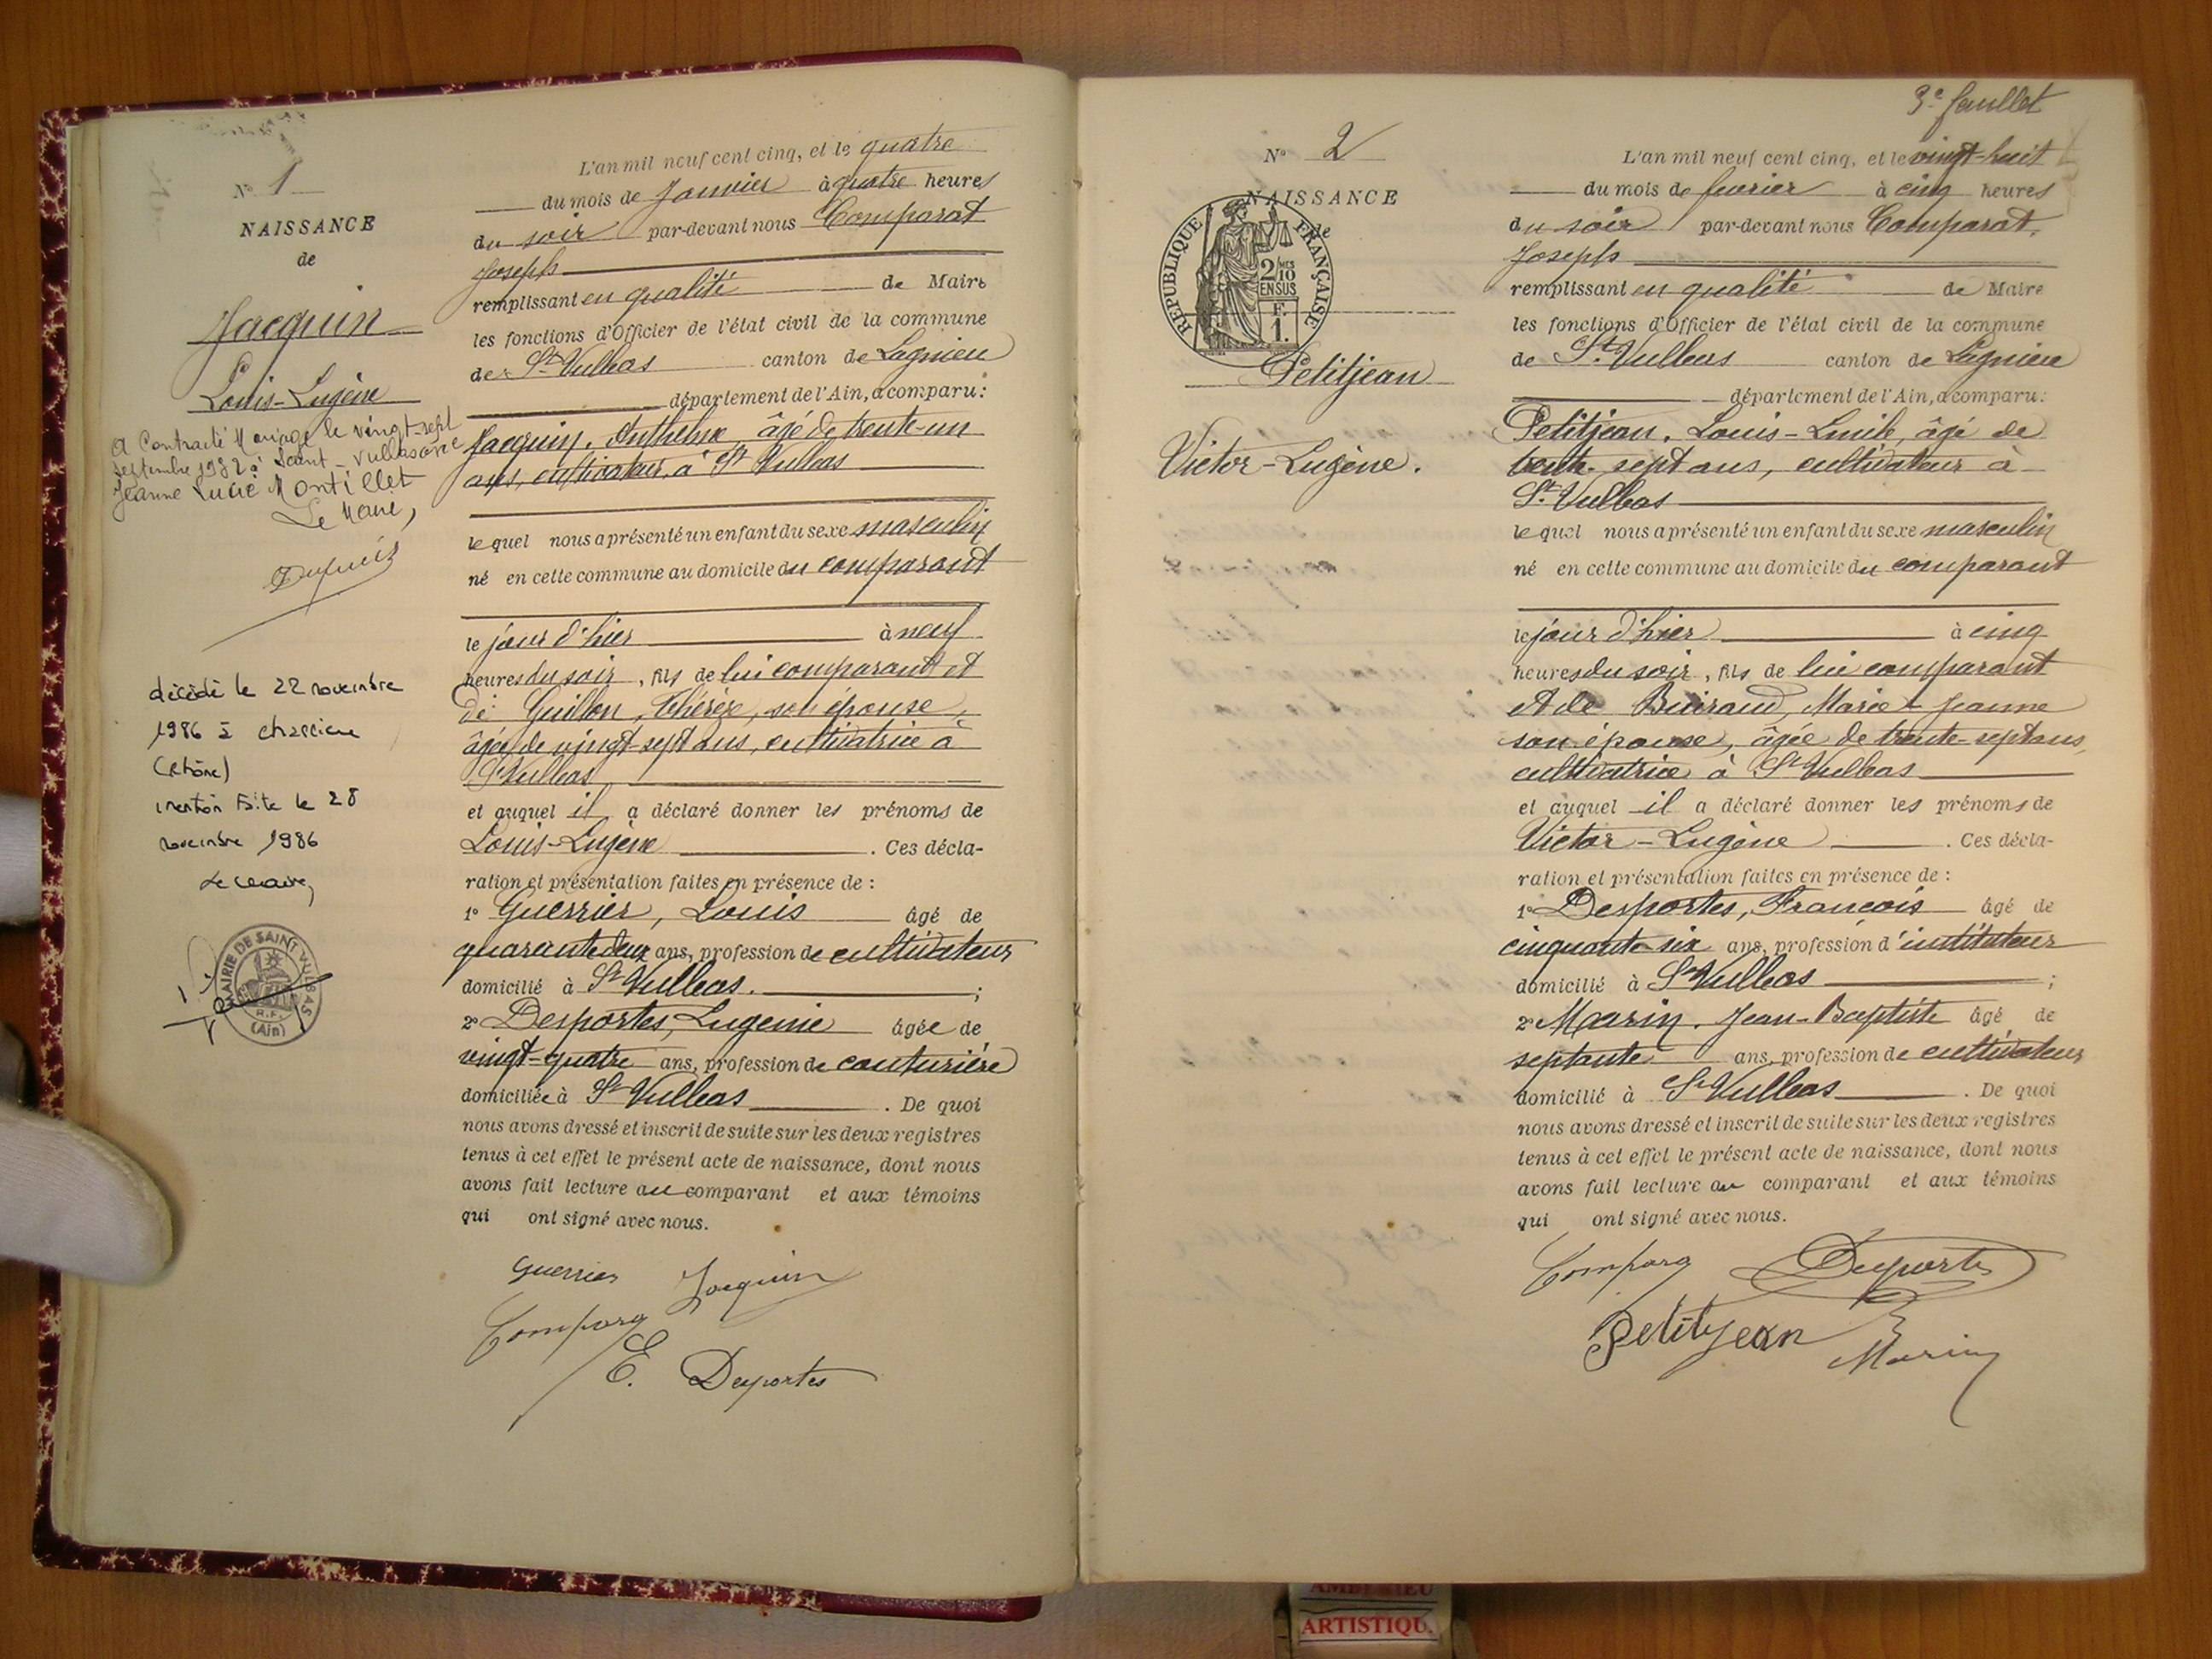 N° 1
NAISSANCE
de
Jacquin
Louis-Eugène
A Contracté Mariage le vingt-sept
septembre 1932 à Saint-Vulbas avec
Jeanne Lucie Montillet
Le Maire,
décédé le 22 novembre
1986 à
(Rhône)
mention faite le 28
novembre 1986
Le Maire,
MAIRIE DE SAINT-VULBAS
R.F.
(Ain)
L'an mil neuf cent cinq, et le quatre
du mois de Janvier à quatre heures
du soir par-devant nous Comparat
Joseph
remplissant en qualité de Maire
les fonctions d'Officier de l'état civil de la commune
de St Vulbas canton de Lagnieu
département de l'Ain, a comparu:
Jacquin, Anthelme, âgé de trente-un
ans, cultivateur à St Vulbas
lequel nous a présenté un enfant du sexe masculin
né en cette commune au domicile du comparant
le jour d'hier à neuf
heures du soir, fils de lui comparant et
de Guillon, Thérèse, son épouse,
âgée de vingt-sept ans, cultivatrice à
St Vulbas
et auquel il a déclaré donner les prénoms de
Louis-Eugène. Ces décla-
ration et présentation faites en présence de :
1° Guerrier, Louis âgé de
quarante deux ans, profession de cultivateur
domicilié à St Vulbas. ;
2° Desportes, Eugenie âgée de
vingt-quatre ans, profession de couturière
domiciliée à St Vulbas. De quoi
nous avons dressé et inscrit de suite sur les deux registres
tenus à cet effet le présent acte de naissance, dont nous
avons fait lecture au comparant et aux témoins
qui ont signé avec nous.
Guerrier Jacquin
E. Desportes
3e feuillet
N° 2
NAISSANCE
de
REPUBLIQUE FRANÇAISE
2/10 EN SUS
F. 1.
Petitjean
Victor-Eugène.
L'an mil neuf cent cinq, et le vingt-huit
du mois de février à cinq heures
du soir par-devant nous Comparat,
Joseph
remplissant en qualité de Maire
les fonctions d'Officier de l'état civil de la commune
de St Vulbas canton de Lagnieu
département de l'Ain, a comparu:
Petitjean, Louis-Emile, âgé de
trente-sept ans, cultivateur à
St Vulbas
lequel nous a présenté un enfant du sexe masculin
né en cette commune au domicile du comparant
le jour d'hier à cinq
heures du soir, fils de lui comparant
et de Buiraud, Marie-Jeanne
son épouse, âgée de trente-sept ans,
cultivatrice à St Vulbas
et auquel il a déclaré donner les prénoms de
Victor-Eugène. Ces décla-
ration et présentation faites en présence de :
1° Desportes, François âgé de
cinquante-six ans, profession d'instituteur
domicilié à St Vulbas ;
2° Marin, Jean-Baptiste âgé de
septante ans, profession de cultivateur
domicilié à St Vulbas. De quoi
nous avons dressé et inscrit de suite sur les deux registres
tenus à cet effet le présent acte de naissance, dont nous
avons fait lecture au comparant et aux témoins
qui ont signé avec nous.
Desportes
Petitjean
Marin
ARTISTIQU